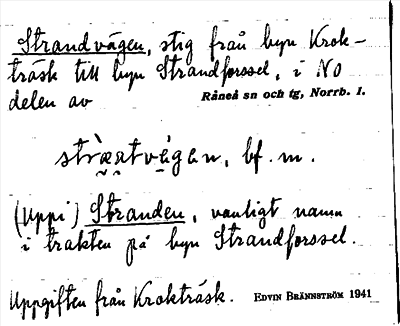 Strandvägen, stig från byn Krok-
träsk till byn Strandforssel, i NO
delen av Råneå sn och tg, Norrb. l.
stràn̰tvǻgan, bf. m.
(Uppi) Stranden, vanligt namn
i trakten på byn Strandforssel.
Uppgiften från Krokträsk. EDVIN BRÄNNSTRÖM 1941